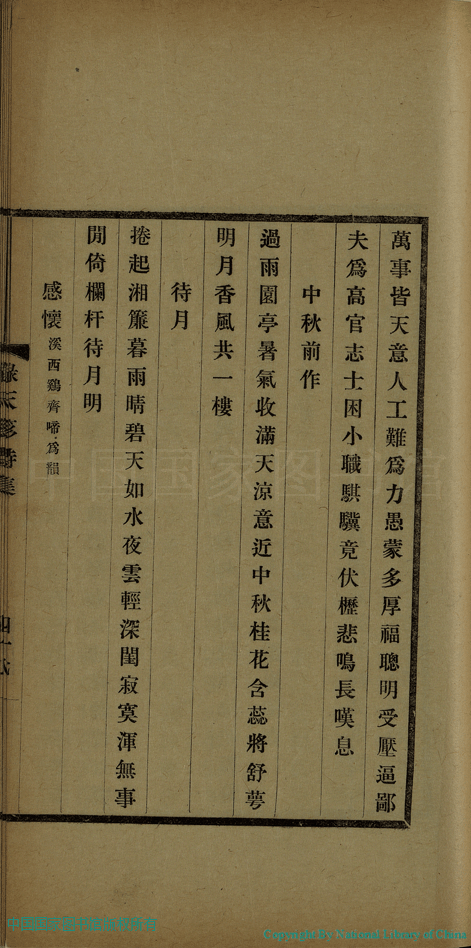 萬事皆天意人工難爲力愚蒙多厚福聰明受壓逼鄙
夫爲高官志士困小職騏驥竟伏櫪悲鳴長嘆息
中秋前作
過雨園亭暑氣收滿天涼意近中秋桂花含蕊將舒萼
明月香風共一樓
待月
捲起湘簾暮雨晴碧天如水夜雲輕深閨寂寞渾無事
閒倚欄杆待月明
感懷溪西鷄齊啼爲韻
詩集
Copyright by National Library of China